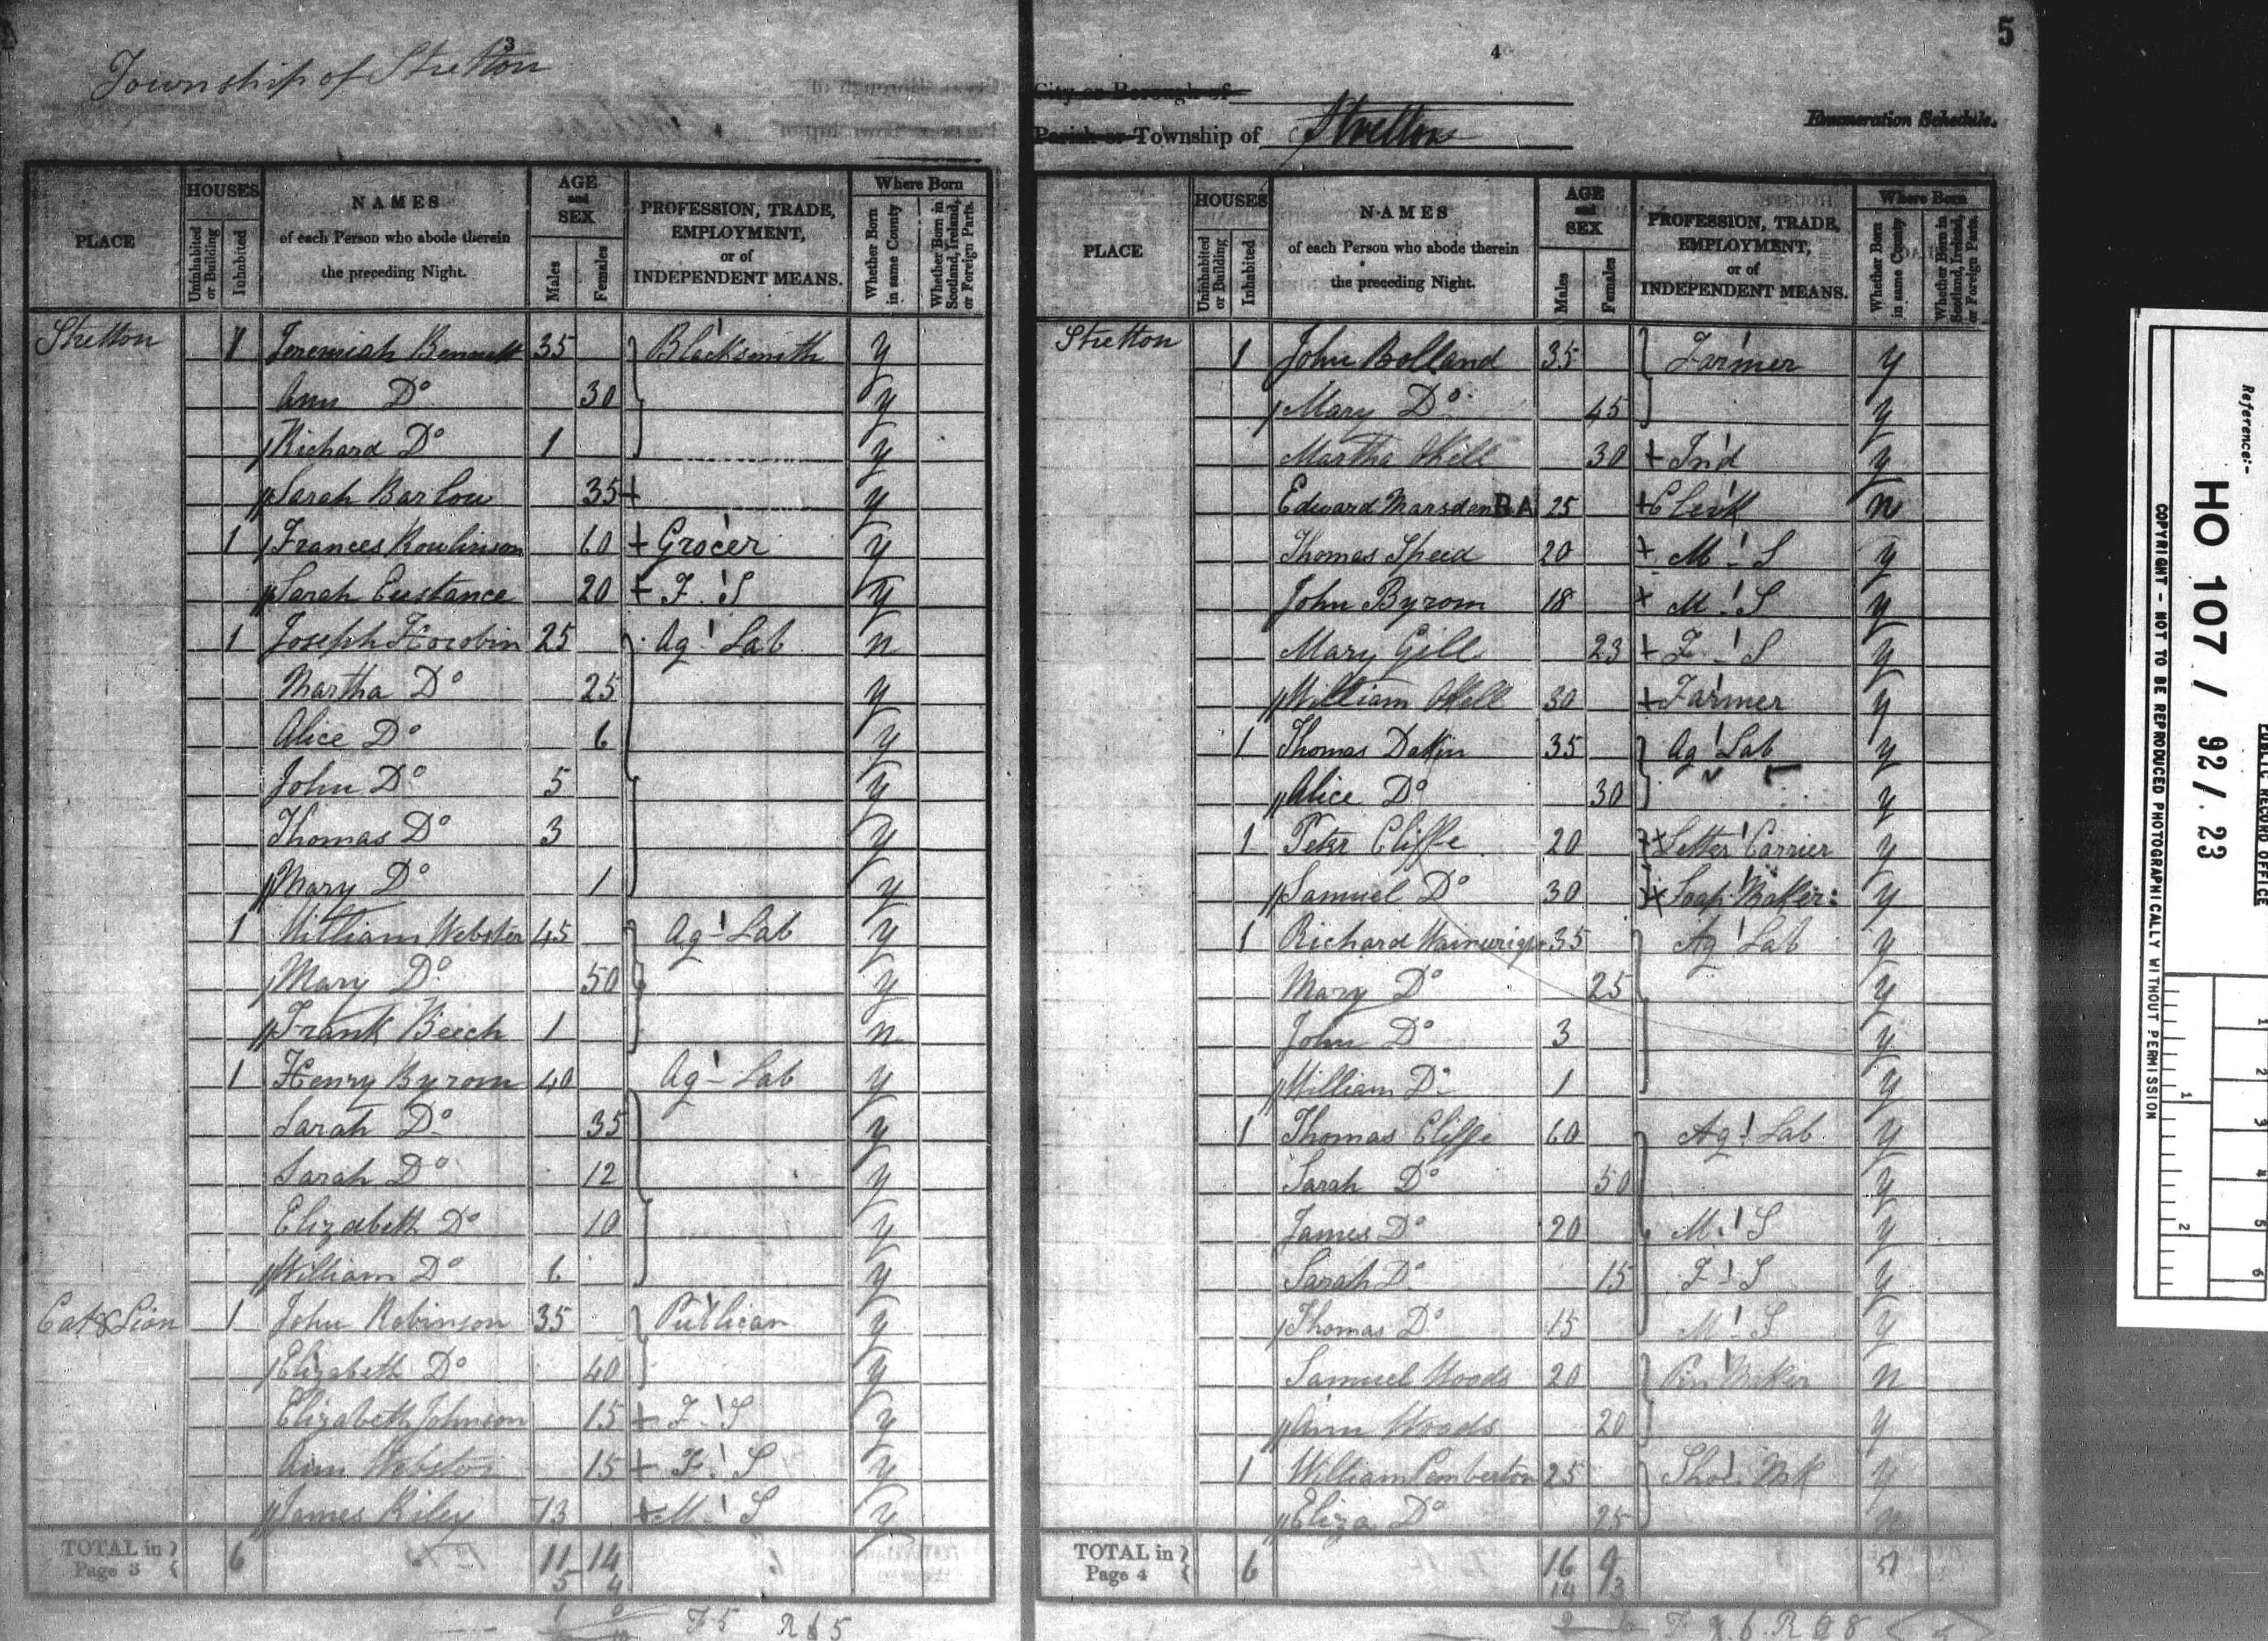 3
Township of Stretton
PLACE
HOUSES
Uninhabited or Building
Inhabited
NAMES of each Person who abode therein the preceding Night.
AGE and SEX
Males
Females
PROFESSION, TRADE, EMPLOYMENT, or of INDEPENDENT MEANS.
Where Born
Whether Born in same County
Whether Born in Scotland, Ireland, or Foreign Parts.
Stretton 1 Jeremiah Bennett 35 Blacksmith y
Ann Do 30 y
Richard Do 1 y
Sarah Barlow 35 y
1 Frances Rowlinson 60 Grocer y
Sarah Eustance 20 F. S y
1 Joseph Horobin 25 Ag Lab n
Martha Do 25 y
Alice Do 6 y
John Do 5 y
Thomas Do 3 y
Mary Do 1 y
1 William Webster 45 Ag Lab y
Mary Do 50 y
Frank Beech 1 n
1 Henry Byrom 40 Ag Lab y
Sarah Do 35 y
Sarah Do 12 y
Elizabeth Do 10 y
William Do 6 y
Cat & Lion 1 John Robinson 35 Publican y
Elizabeth Do 40 y
Elizabeth Johnson 15 F. S y
Ann Webster 15 F. S y
James Riley 13 M. S y
TOTAL in Page 3 6 11 14
5 4
F 5 R 5
5
4
City or Borough of
Parish or Township of Stretton
Enumeration Schedule.
PLACE
HOUSES
Uninhabited or Building
Inhabited
NAMES of each Person who abode therein the preceding Night.
AGE and SEX
Males
Females
PROFESSION, TRADE, EMPLOYMENT, or of INDEPENDENT MEANS.
Where Born
Whether Born in same County
Whether Born in Scotland, Ireland, or Foreign Parts.
Stretton 1 John Bolland 35 Farmer y
Mary Do 45 y
Martha 30 Ind y
Edward Marsden BA 25 Clerk n
Thomas Speed 20 M. S y
John Byrom 18 M. S y
Mary Gill 23 F. S y
William 30 Farmer y
1 Thomas Dakin 35 Ag Lab y
Alice Do 30 y
1 Peter Cliffe 20 Letter Carrier y
Samuel Do 30 Soap Maker y
1 Richard Wainwright 35 Ag Lab y
Mary Do 25 y
John Do 3 y
William Do 1 y
1 Thomas Cliffe 60 Ag. Lab y
Sarah Do 50 y
James Do 20 M. S y
Sarah Do 15 F. S y
Thomas Do 15 M. S y
Samuel Woods 20 Pin Maker n
Ann Woods 20 y
1 William Pemberton 25 Shoe Mk y
Eliza Do 25 n
TOTAL in Page 4 6 16 9
14 3
Reference:-
HO 107 / 92 / 23
PUBLIC RECORD OFFICE
COPYRIGHT - NOT TO BE REPRODUCED PHOTOGRAPHICALLY WITHOUT PERMISSION
1 2 3 4 5 6
1 2